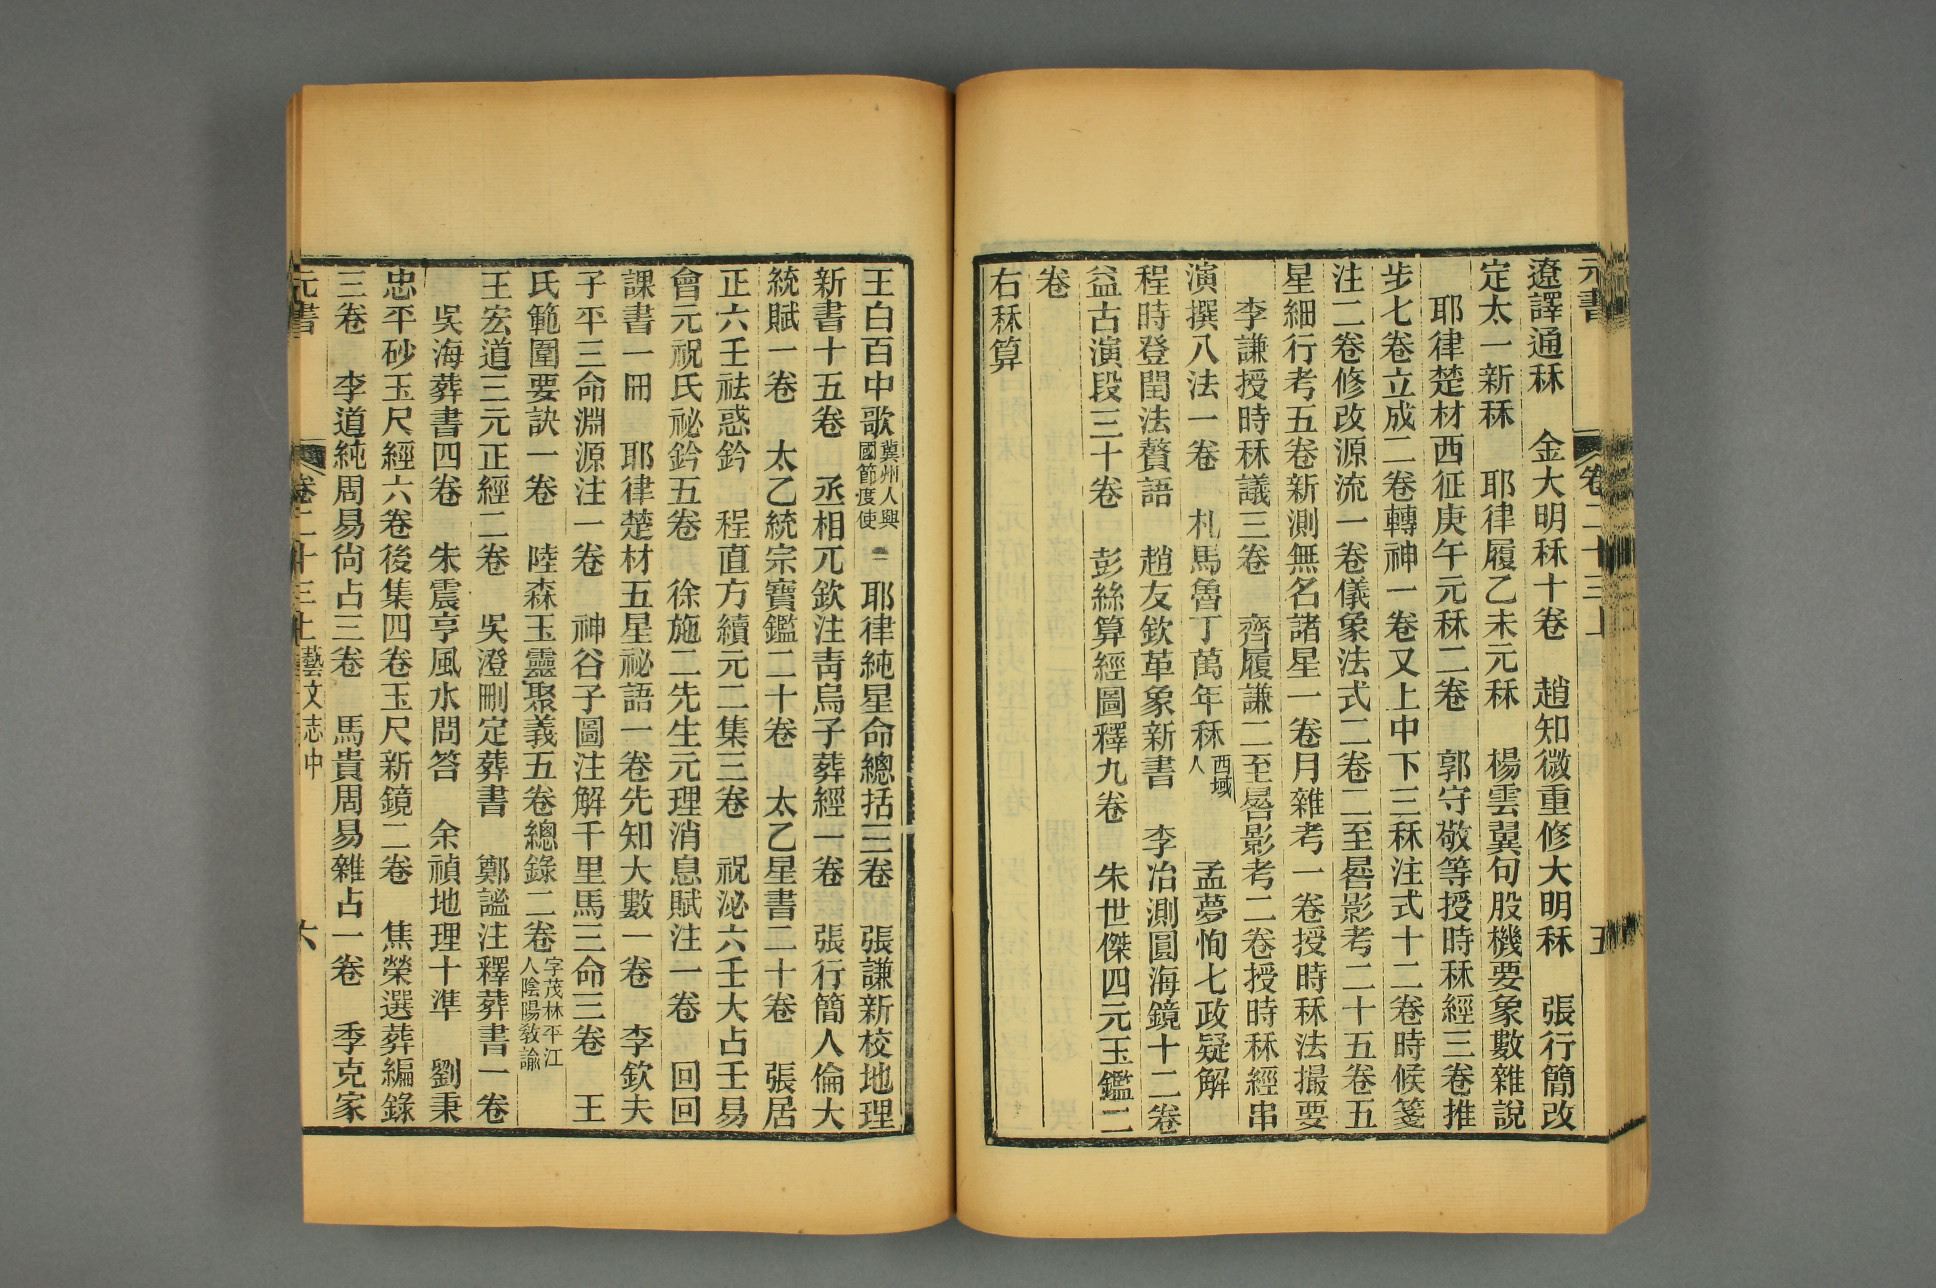 元書
卷二十三上
五
遼譯通秝　金大明秝十卷　趙知微重修大明秝　張行簡改
定太一新秝　耶律履乙未元秝　楊雲翼句股機要象數雜說
耶律楚材西征庚午元秝二卷　郭守敬等授時秝經三卷推
步七卷立成二卷轉神一卷又上中下三秝注式十二卷時候箋
注二卷修改源流一卷儀象法式二卷二至晷影考二十五卷五
星細行考五卷新測無名諸星一卷月離考一卷授時秝法撮要
李謙授時秝議三卷　齊履謙二至晷影考二卷授時秝經串
演撰八法一卷　札馬魯丁萬年秝西域人　孟夢恂七政疑解
程時登閏法贅語　趙友欽革象新書　李冶測圓海鏡十二卷
益古演段三十卷　彭絲算經圖釋九卷　朱世傑四元玉鑑二
卷
右秝算
王白百中歌冀州人興國節度使　耶律純星命總括三卷　張謙新校地理
新書十五卷　丞相兀欽注青烏子葬經一卷　張行簡人倫大
統賦一卷　太乙統宗寶鑑二十卷　太乙星書二十卷　張居
正六壬祛惑鈐　程直方續元元集三卷　祝泌六壬大占壬易
會元祝氏祕鈐五卷　徐施二先生元理消息賦注一卷　回回
課書一冊　耶律楚材五星祕語一卷先知大數一卷　李欽夫
子平三命淵源注一卷　神谷子圖注解千里馬三命三卷　王
氏範圍要訣一卷　陸森玉靈聚義五卷總錄二卷字茂林平江人陰陽敎諭
王宏道三元正經二卷　吳澄刪定葬書　鄭謐注釋葬書一卷
吳海葬書四卷　朱震亨風水問答　余禎地理十準　劉秉
忠平砂玉尺經六卷後集四卷玉尺新鏡二卷　焦榮選葬編錄
三卷　李道純周易尙占三卷　馬貴周易雜占一卷　季克家
元書
卷二十三上
藝文志中
六